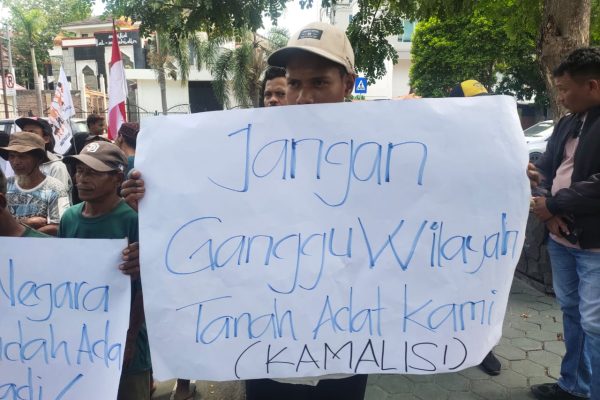 Jangan
Ganggu Wilayah
Tanah Adat Kami
(KAMALISI)
Negara
Ada